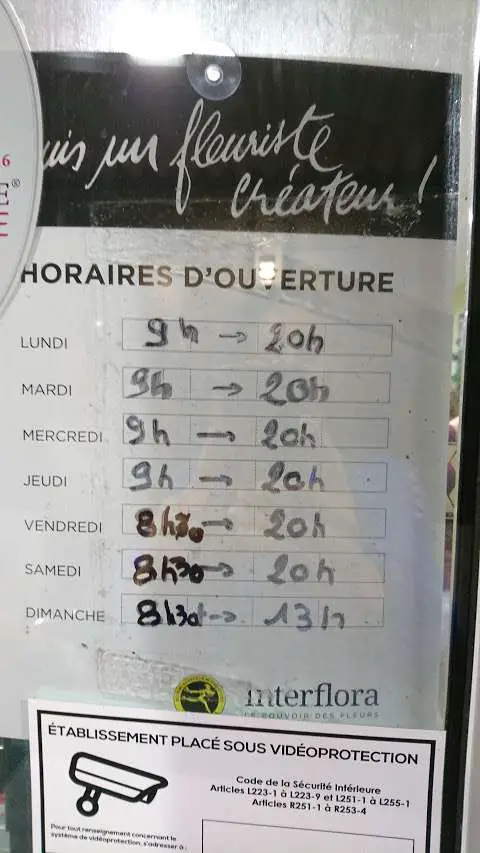 6
®
uis un fleuriste
créateur !
HORAIRES D'OUVERTURE
LUNDI 9h → 20h
MARDI 9h → 20h
MERCREDI 9h → 20h
JEUDI 9h → 20h
VENDREDI 8h30 → 20h
SAMEDI 8h30 → 20h
DIMANCHE 8h30 → 13h
interflora
LE POUVOIR DES FLEURS
ÉTABLISSEMENT PLACÉ SOUS VIDÉOPROTECTION
Code de la Sécurité Intérieure
Articles L223-1 à L223-9 et L251-1 à L255-1
Articles R251-1 à R253-4
Pour tout renseignement concernant le
système de vidéoprotection, s'adresser à :